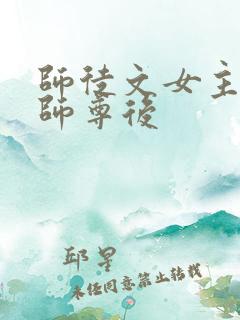 師徒文女主
師尊後
邱星
未经同意禁止转载